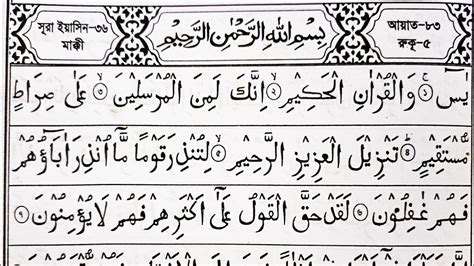 সূরা ইয়াসিন-৩৬
মাক্কী
بِسْمِ اللهِ الرَّحْمٰنِ الرَّحِيْمِ
আয়াত-৮৩
রুকু-৫
يٰسٓ ۝١ وَالْقُرْاٰنِ الْحَكِيْمِ ۝٢ اِنَّكَ لَمِنَ الْمُرْسَلِيْنَ ۝٣ عَلٰى صِرَاطٍ
مُّسْتَقِيْمٍ ۝٤ تَنْزِيْلَ الْعَزِيْزِ الرَّحِيْمِ ۝٥ لِتُنْذِرَ قَوْمًا مَّآ اُنْذِرَ اٰبَآؤُهُمْ
فَهُمْ غٰفِلُوْنَ ۝٦ لَقَدْ حَقَّ الْقَوْلُ عَلٰٓى اَكْثَرِهِمْ فَهُمْ لَا يُؤْمِنُوْنَ ۝٧